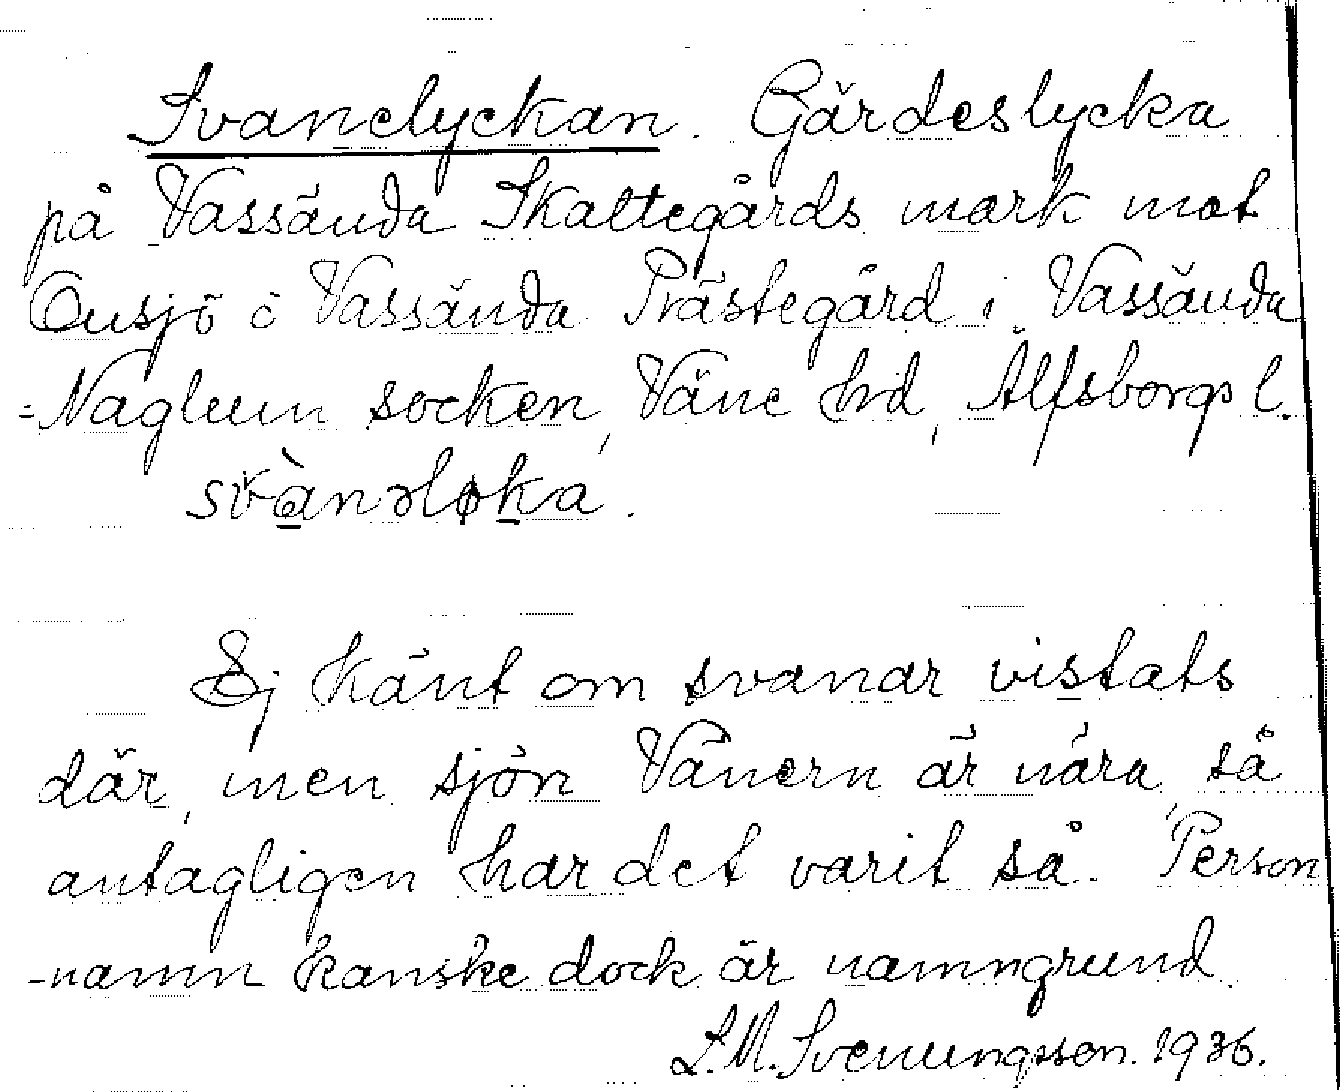 Svanelyckan. Gärdeslycka
på Vassända Skattegårds mark mot
Onsjö o Vassända Prästegård i Vassända
-Naglum socken, Väne hd, Älfsborgs l.
svànəløka.
Ej känt om svanar vistats
där, men sjön Vänern är nära, så
antagligen har det varit så. Person
-namn kanske dock är namngrund
L.M. Svenungsson. 1936.